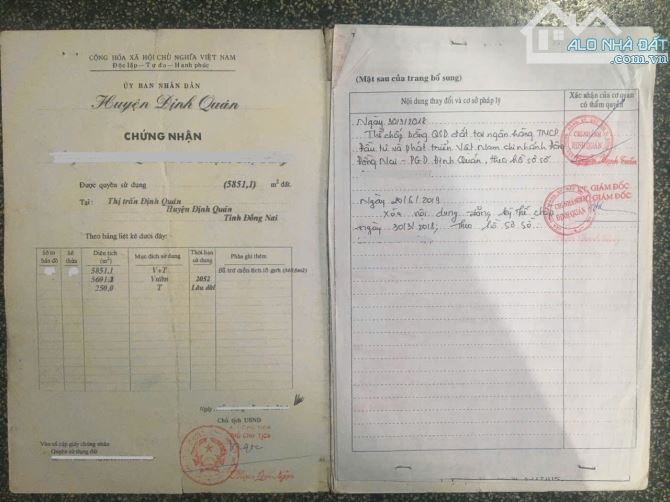 ALO NHÀ ĐẤT
.com.vn
CỘNG HÒA XÃ HỘI CHỦ NGHĨA VIỆT NAM
Độc lập - Tự do - Hạnh phúc
ỦY BAN NHÂN DÂN
Huyện Định Quán
CHỨNG NHẬN
Được quyền sử dụng (5851,1) m² đất.
Tại: Thị trấn Định Quán
Huyện Định Quán
Tỉnh Đồng Nai
Theo bảng liệt kê dưới đây:
Số tờ bản đồ Số thửa Diện tích (m²) Mục đích sử dụng Thời hạn sử dụng Phần ghi thêm
5851,1 V+T Đã trừ diện tích lộ giới
5601,1 Vườn 2052
250,0 T Lâu dài
Ngày
Chủ tịch UBND
CHỦ TỊCH
Vào sổ cấp giấy chứng nhận
Quyền sử dụng đất
(Mặt sau của trang bổ sung)
Nội dung thay đổi và cơ sở pháp lý
Xác nhận của cơ quan
có thẩm quyền
Ngày 30/3/2018
Thế chấp bằng QSD đất tại ngân hàng TMCP
Đầu tư và phát triển Việt Nam chi nhánh Đông
Đồng Nai - PGD Định Quán, theo hồ sơ số
CHI NHÁNH
ĐỊNH QUÁN
Ngày 20/6/2019
Xóa nội dung đăng ký thế chấp
ngày 30/3/2018, theo hồ sơ số
GIÁM ĐỐC
GIÁM ĐỐC
CHI NHÁNH
ĐỊNH QUÁN